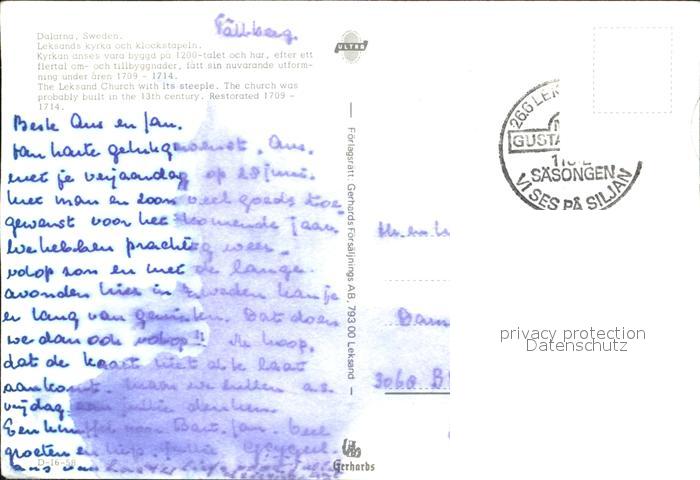 Tällberg.
Dalarna, Sweden.
Leksands kyrka och klockstapeln.
Kyrkan anses vara byggd på 1200-talet och har, efter ett
flertal om- och tillbyggnader, fått sin nuvarande utform-
ning under åren 1709 - 1714.
The Leksand Church with its steeple. The church was
probably built in the 13th century. Restorated 1709 -
1714.
ULTRA
Beste Ans en Jan.
Van harte gelukgewenst, Ans.
met je verjaardag op 28 juni.
Met man en zoon veel goeds toe-
gewenst voor het komende jaar.
We hebben prachtig weer.
volop zon en met de lange
avonden hier in Zweden kan je
er lang van genieten. Dat doen
we dan ook volop!! Ik hoop,
dat de kaart niet al te laat
aankomt. maar we zullen a.s.
vrijdag aan jullie denken.
Een knuffel voor Bart. Jan. veel
groeten en
D-16-58
Förlagsrätt: Gerhards Försäljnings AB, 793 00 Leksand
Gerhards
26.6 LEK
GUSTA
SÄSONGEN
VI SES PÅ SILJAN
3060 B
privacy protection
Datenschutz